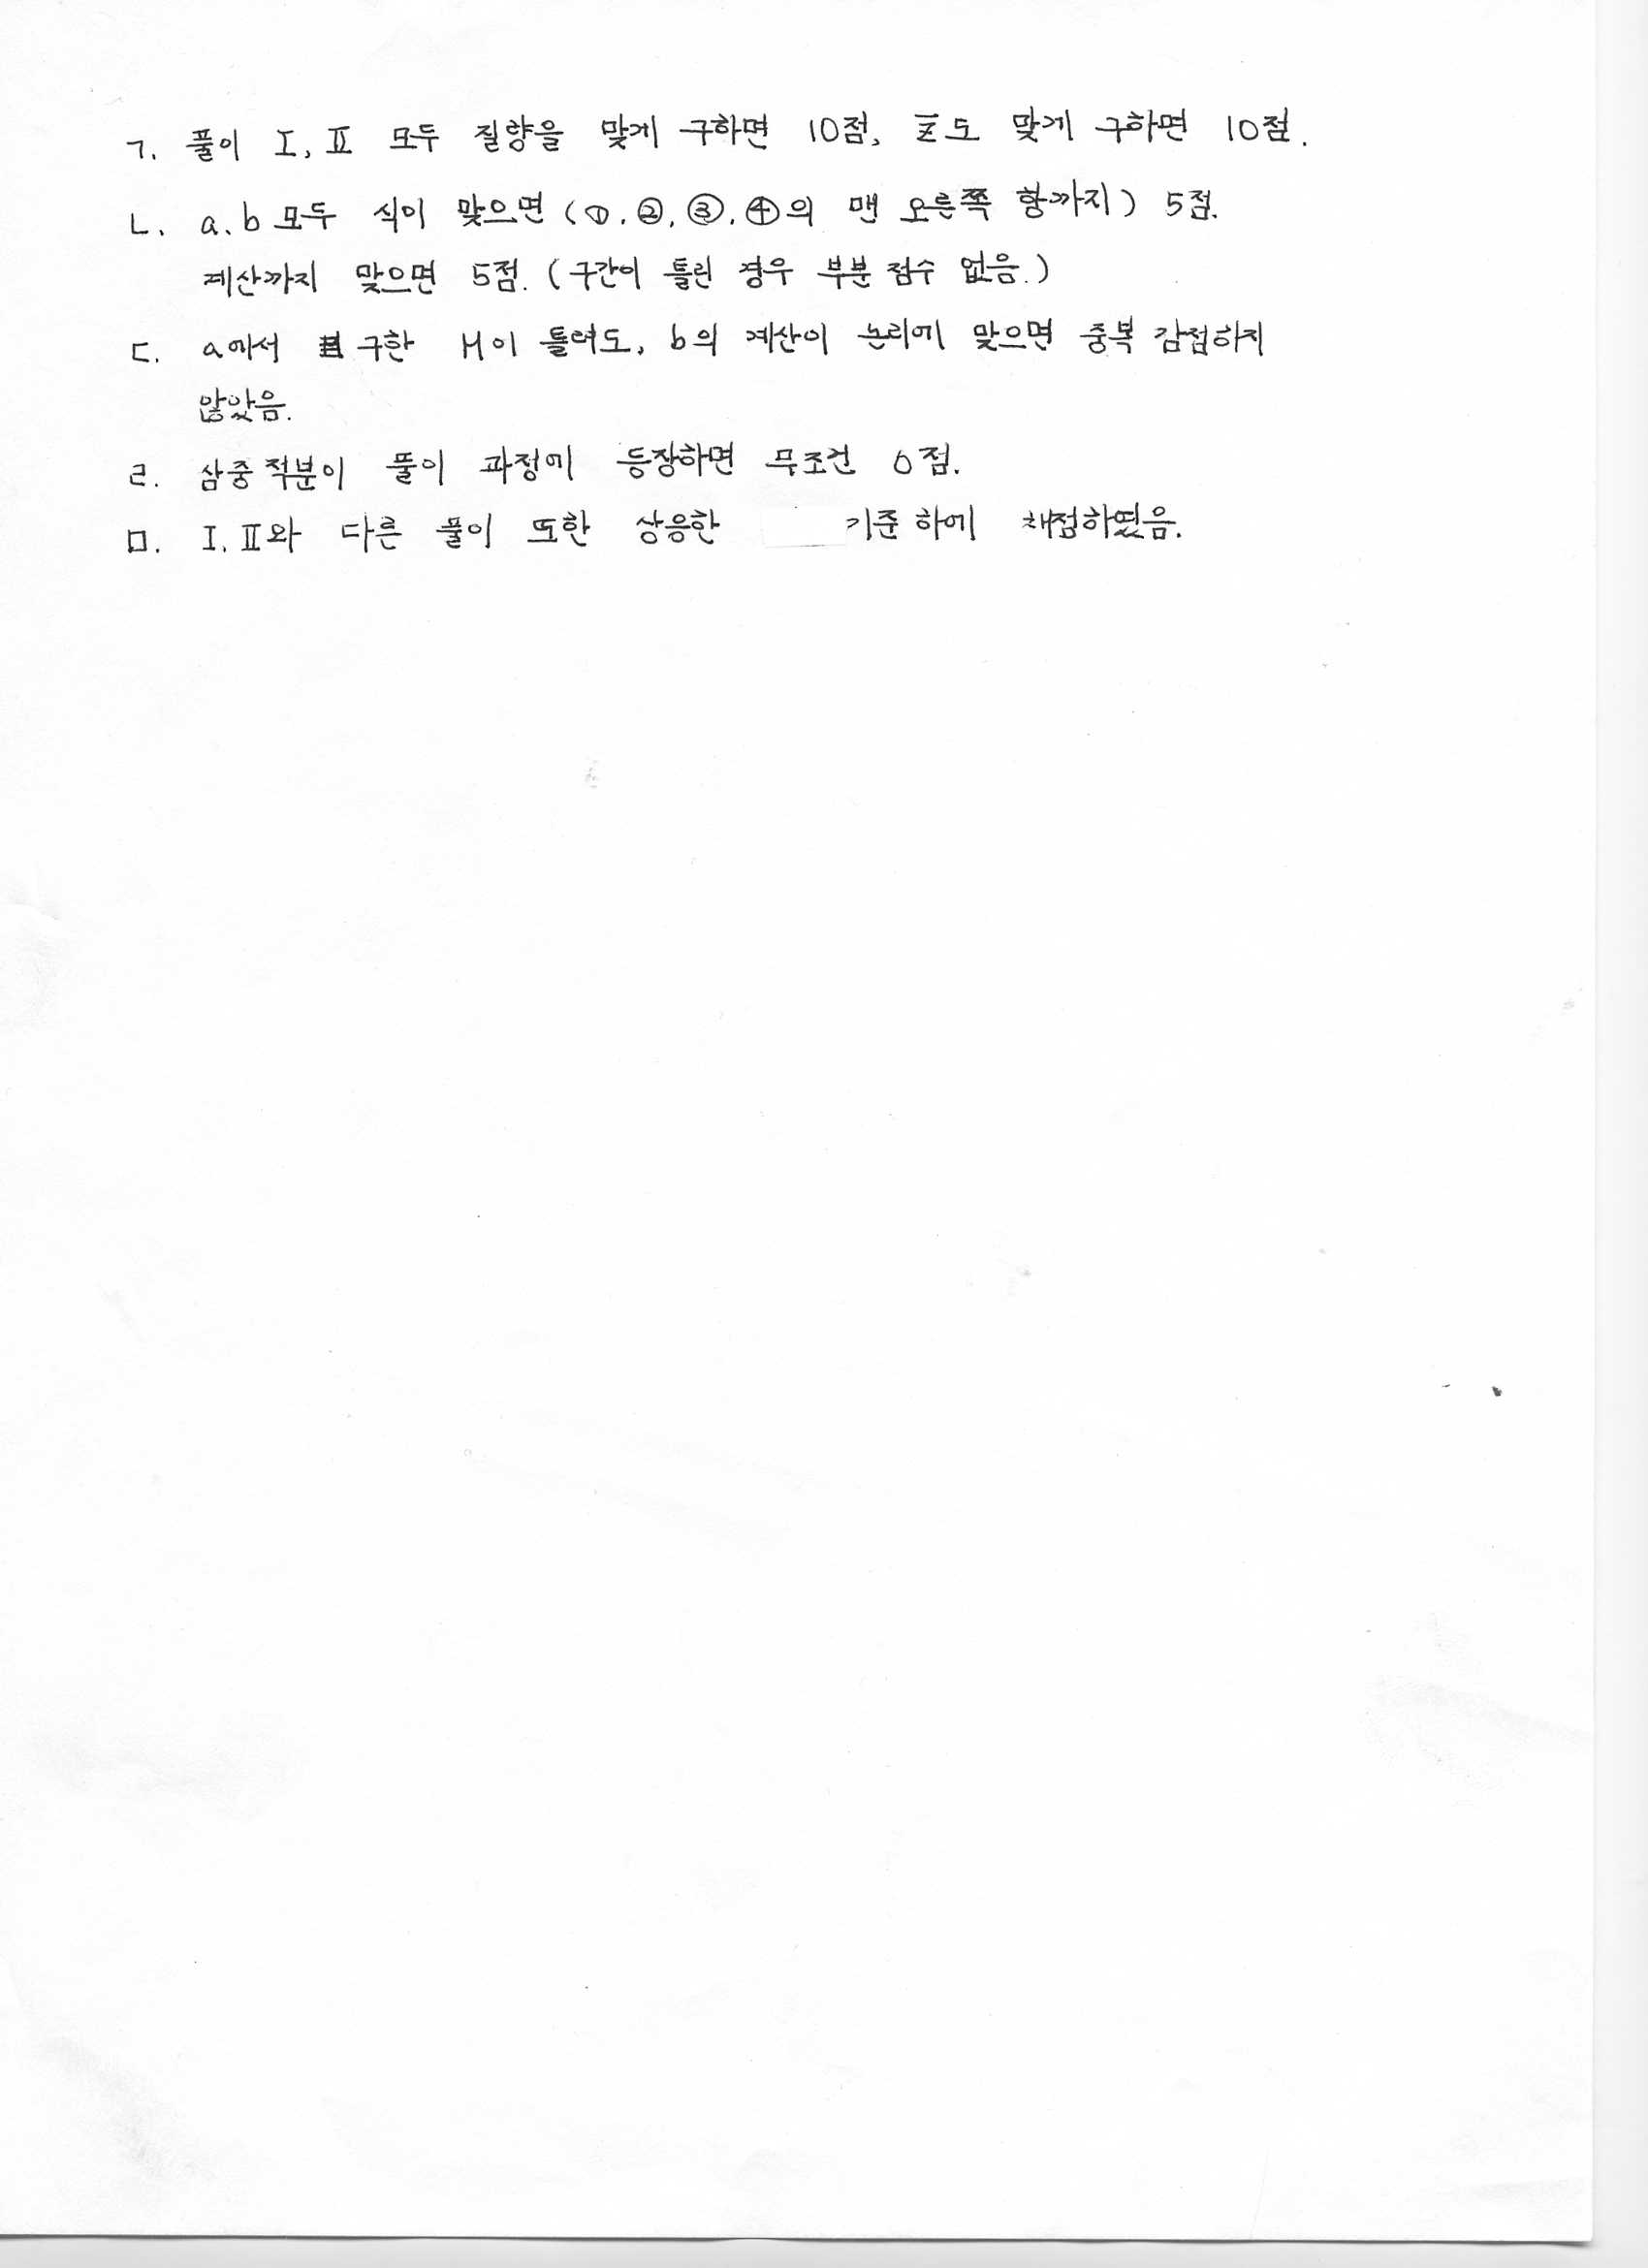 ㄱ. 풀이 I, II 모두 질량을 맞게 구하면 10점, z̄도 맞게 구하면 10점.
ㄴ. a, b 모두 식이 맞으면 (①, ②, ③, ④의 맨 오른쪽 항까지) 5점.
계산까지 맞으면 5점. (구간이 틀린 경우 부분 점수 없음.)
ㄷ. a에서 구한 M이 틀려도, b의 계산이 논리에 맞으면 중복 감점하지
않았음.
ㄹ. 삼중적분이 풀이 과정에 등장하면 무조건 0점.
ㅁ. I, II와 다른 풀이 또한 상응한 기준 하에 채점하였음.